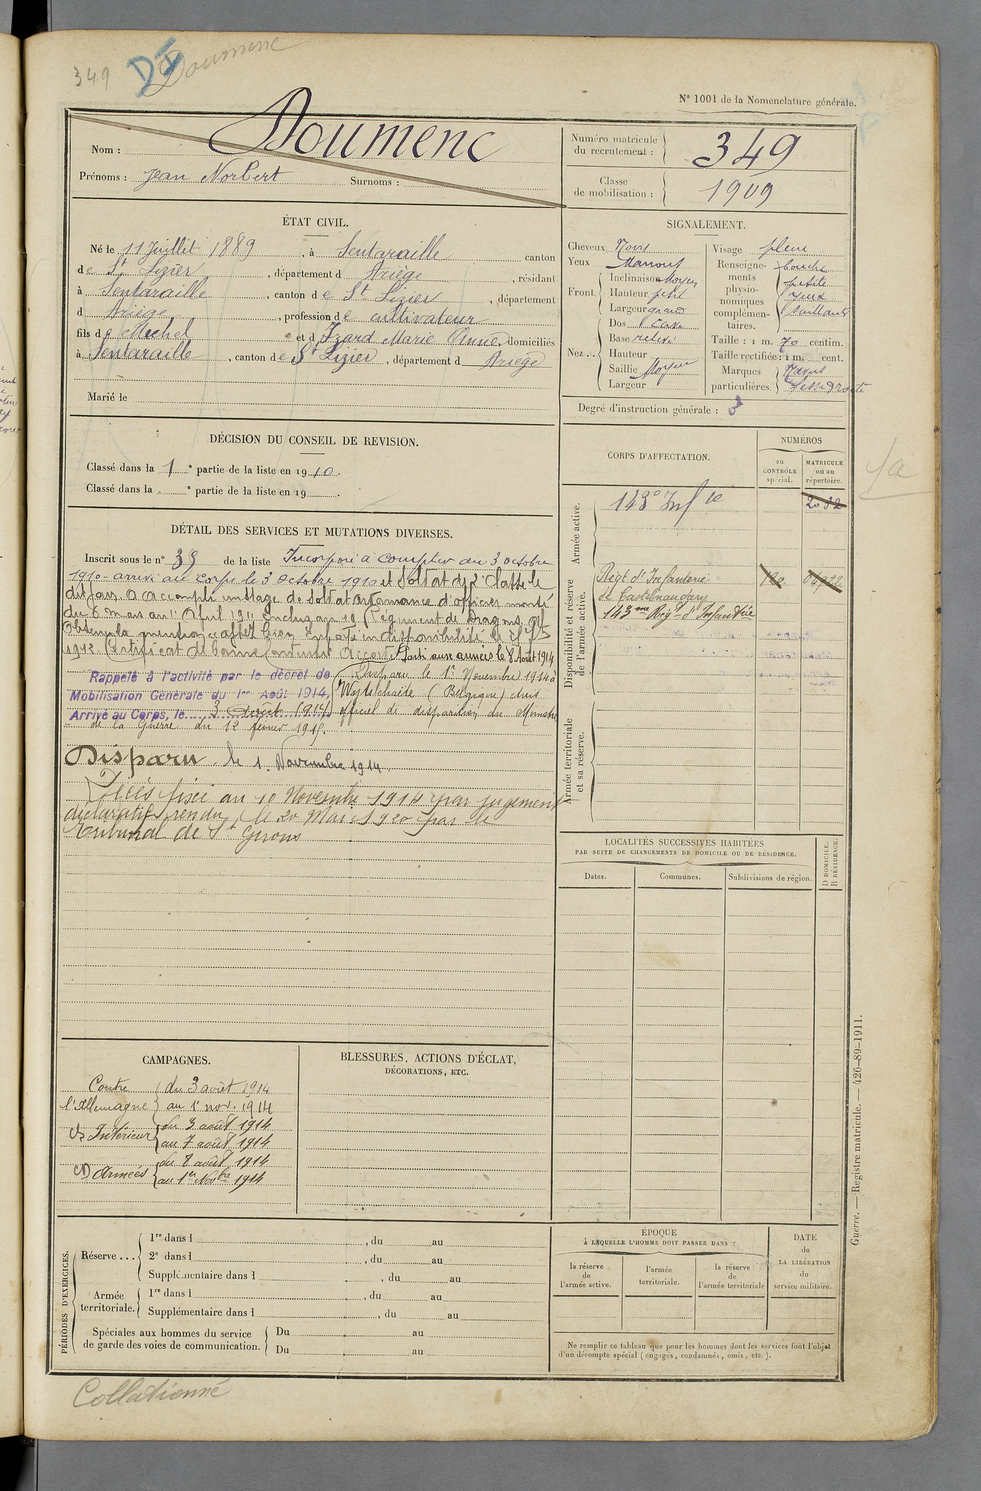 349 Doumenc
N° 1001 de la Nomenclature générale.
Nom : Doumenc
Prénoms : Jean Norbert Surnoms :
Numéro matricule du recrutement : 349
Classe de mobilisation : 1909
ÉTAT CIVIL.
Né le 11 Juillet 1889, à Sentaraille canton
de St Lizier, département d Ariège, résidant
à Sentaraille, canton de St Lizier, département
d Ariège, profession de cultivateur
fils de Michel et d Izard Marie Anne, domiciliés
à Sentaraille, canton de St Lizier, département d Ariège
Marié le
SIGNALEMENT.
Cheveux Noirs
Yeux Marrons
Front. Inclinaison Moyen
Hauteur petit
Largeur grand
Nez . . Dos Cave
Base relevé
Hauteur
Saillie Moyen
Largeur
Visage plein
Renseignements physionomiques complémentaires. bouche
petite
yeux
saillants
Taille : 1 m. 70 centim.
Taille rectifiée : 1 m. cent.
Marques particulières.
fesse droite
Degré d'instruction générale : 3
DÉCISION DU CONSEIL DE REVISION.
Classé dans la 1e partie de la liste en 1910.
Classé dans la e partie de la liste en 19
CORPS D'AFFECTATION.
NUMÉROS
au CONTRÔLE spécial.
MATRICULE ou au répertoire.
Armée active.
143e Infie
Disponibilité et réserve de l'armée active.
Régt d'Infanterie
de Castelnaudary
143me Régt d'Infanterie
Armée territoriale et sa réserve.
DÉTAIL DES SERVICES ET MUTATIONS DIVERSES.
Inscrit sous le n° 35 de la liste Incorporé à compter du 3 octobre
1910 arrivé au corps le 3 octobre 1910 et Soldat de 2e Classe le
dit jour. A accompli un stage de soldat ordonnance d'officier monté
du 6 mars au 1er Avril 1911 inclus au 19e Régiment de Dragons. A
obtenu la mention
1912. Certificat de bonne conduite Accordé. Parti aux armées le 8 Août 1914
Rappelé à l'activité par le décret de
Mobilisation Générale du 1er Août 1914.
Arrivé au Corps, le 3 août 1914
Disparu le 1er Novembre 1914 à
Wytschaete (Belgique) avis
officiel de disparition du Ministre
de la Guerre du 12 février 1915.
Disparu le 1. Novembre 1914.
Décès fixé au 10 Novembre 1914 par jugement
déclaratif rendu le 20 Mars 1920 par le
Tribunal de St Girons
LOCALITÉS SUCCESSIVES HABITÉES
PAR SUITE DE CHANGEMENTS DE DOMICILE OU DE RÉSIDENCE.
Dates.
Communes.
Subdivisions de région.
D DOMICILE.
R RÉSIDENCE.
CAMPAGNES.
Contre l'Allemagne du 3 août 1914
au 1er nov. 1914
Intérieur du 3 août 1914
au 7 août 1914
CD Armées du 8 août 1914
au 1er Novbre 1914
BLESSURES, ACTIONS D'ÉCLAT,
DÉCORATIONS, ETC.
PÉRIODES D'EXERCICES.
Réserve . . .
1re dans l , du au
2e dans l , du au
Supplémentaire dans l , du au
Armée territoriale.
1re dans l , du au
Supplémentaire dans l , du au
Spéciales aux hommes du service de garde des voies de communication.
Du au
Du au
ÉPOQUE
À LAQUELLE L'HOMME DOIT PASSER DANS :
la réserve de l'armée active.
l'armée territoriale.
la réserve de l'armée territoriale
DATE de LA LIBÉRATION du service militaire.
Ne remplir ce tableau que pour les hommes dont les services font l'objet
d'un décompte spécial (engagés, condamnés, omis, etc.).
Guerre. — Registre matricule. — 426-89-1911.
Collationné